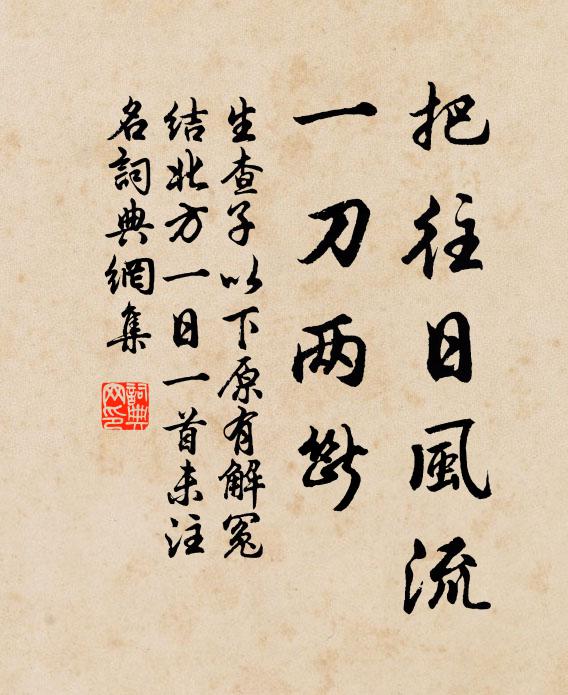 把往日風流
一刀两斷
生查子以下原有解冤
结北方一日一首未注
名詞典網集
詞典
网印